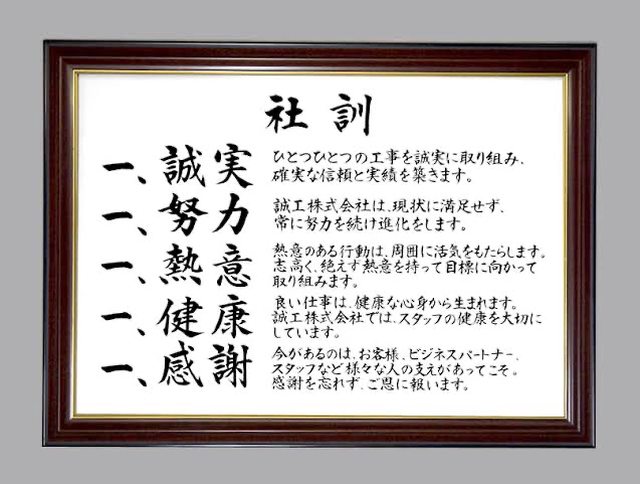 社訓
一、誠実
ひとつひとつの工事を誠実に取り組み、
確実な信頼と実績を築きます。
一、努力
誠工株式会社は、現状に満足せず、
常に努力を続け進化をします。
一、熱意
熱意のある行動は、周囲に活気をもたらします。
志高く、絶えず熱意を持って目標に向かって
取り組みます。
一、健康
良い仕事は、健康な心身から生まれます。
誠工株式会社では、スタッフの健康を大切に
しています。
一、感謝
今があるのは、お客様、ビジネスパートナー、
スタッフなど様々な人の支えがあってこそ。
感謝を忘れず、ご恩に報います。